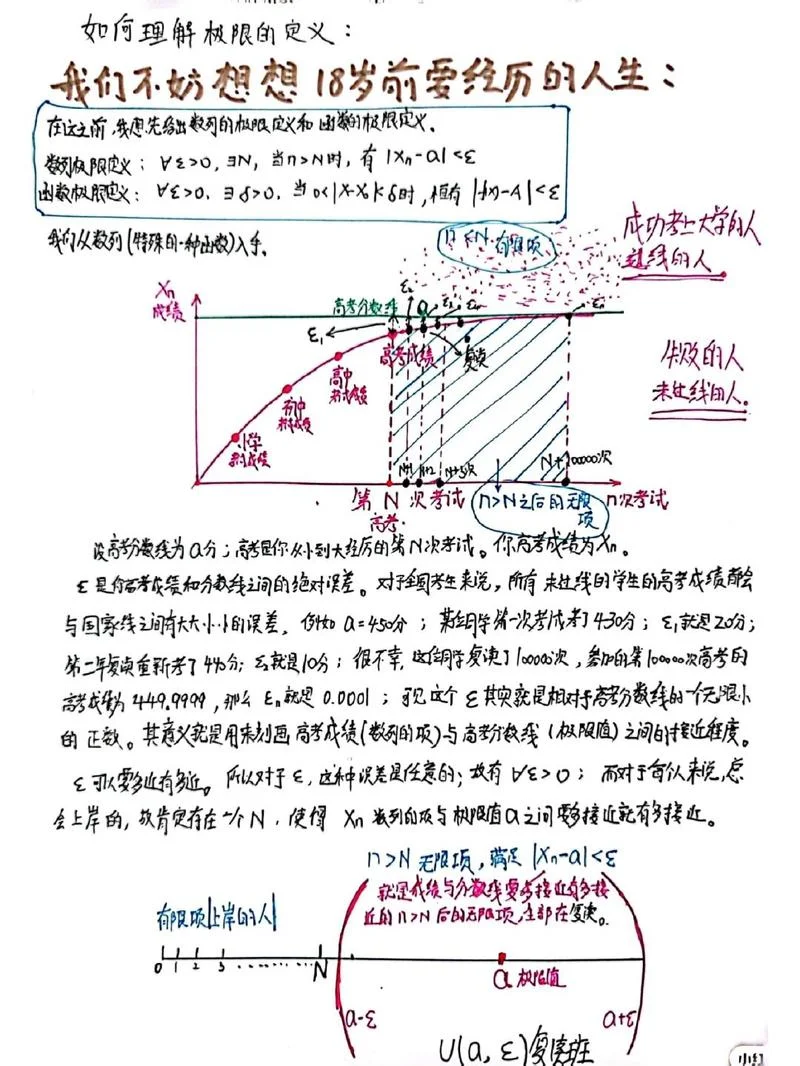 如何理解极限的定义：
我们不妨想想18岁前要经历的人生：
在这之前，我想先给出数列的极限定义和函数的极限定义。
数列极限定义：∀ε>0，∃N，当n>N时，有|Xn-a|<ε
函数极限定义：∀ε>0，∃δ>0，当0<|X-X₀|<δ时，恒有|f(x)-A|<ε
我们从数列(特殊的一种函数)入手。
n<N 有限项
成功考上大学的人
过线的人
Xn
成绩
高考分数线
a
ε₁
ε₂
高考成绩
复读
高中
考试成绩
初中
考试成绩
小学
考试成绩
失败的人
未过线的人。
N+1
N+2
N+3次
N+100000次
第N次考试
高考
n>N之后的无限项
n次考试
设高考分数线为a分；高考是你从小到大经历的第N次考试。你高考成绩为Xn。
ε是你高考成绩和分数线之间的绝对误差。对于全国考生来说，所有未过线的学生的高考成绩都会
与国家线之间有大大小小的误差，例如a=450分；某个同学第一次考试考了430分；ε₁就是20分；
第二年复读重新考了440分；ε₂就是10分；很不幸，这位同学复读了10000次，参加的第100000次高考的
高考成绩为449.9999，那么εn就是0.0001；可见这个ε其实就是相对于高考分数线的一个无限小
的正数。其意义就是用来刻画高考成绩(数列的项)与高考分数线(极限值)之间的接近程度。
ε可以要多近有多近。所以对于ε，这种误差是任意的；故有∀ε>0；而对于每个人来说，总
会上岸的，故肯定存在一个N，使得Xn数列的项与极限值a之间要多接近就有多接近。
n>N无限项，满足|Xn-a|<ε
就是成绩与分数线要多接近有多接
近的n>N后的无限项，全部在复读。
有限项|上岸的人|
0 1 2 3 ········· N
a 极限值
a-ε
a+ε
U(a，ε)复读班
小红